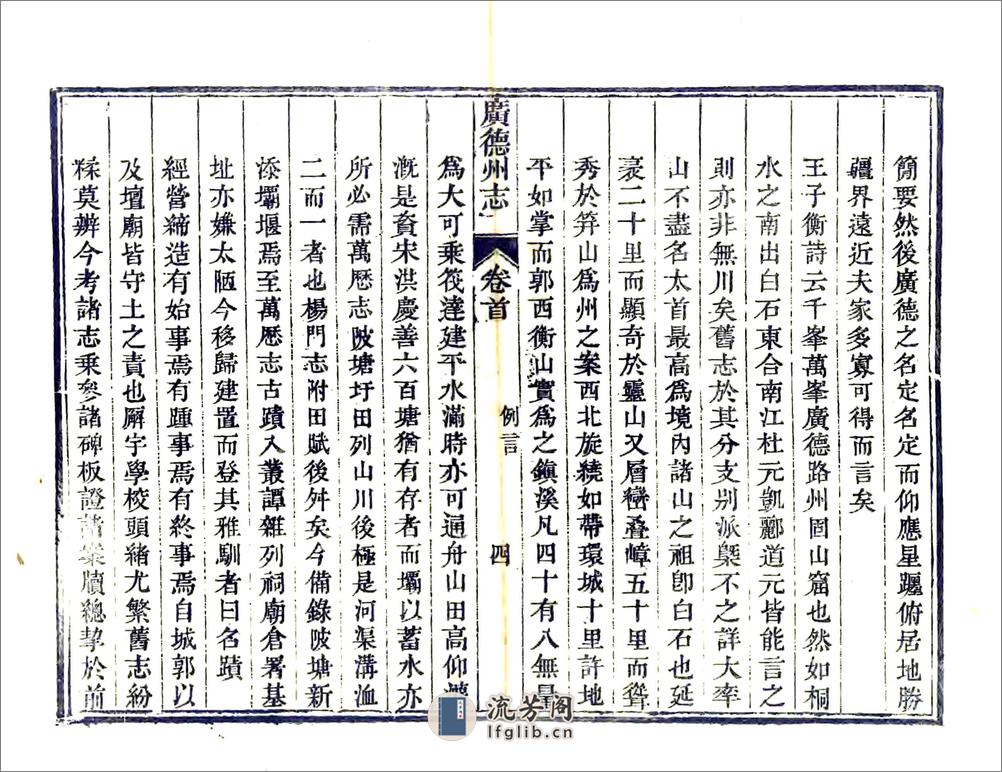 簡要然後廣德之名定名定而仰應星躔俯居地勝
疆界遠近夫家多寡可得而言矣
王子衡詩云千峯萬峯廣德路州固山窟也然如桐
水之南出白石東合南江杜元凱酈道元皆能言之
則亦非無川矣舊志於其分支别派槩不之詳大率
山不盡名太首最高爲境內諸山之祖卽白石也延
袤二十里而顯奇於靈山又層巒叠嶂五十里而聳
秀於笄山爲州之案西北旋繞如帶環城十里許地
平如掌而郭西衡山實爲之鎭溪凡四十有八無量
廣德州志
卷首
例言
四
爲大可乘筏達建平水滿時亦可通舟山田高仰
漑是資宋洪慶善六百塘猶有存者而壩以蓄水亦
所必需萬厯志陂塘圩田列山川後極是河渠溝洫
二而一者也楊門志附田賦後舛矣今備錄陂塘新
添壩堰焉至萬厯志古蹟入叢譚雜列祠廟倉署基
址亦嫌太陋今移歸建置而登其雅馴者曰名蹟
經營締造有始事焉有踵事焉有終事焉自城郭以
及壇廟皆守土之責也廨宇學校頭緒尤繁舊志紛
糅莫辨今考諸志乘參諸碑板證諸案牘總挈於前
流芳阁
lfglib.cn